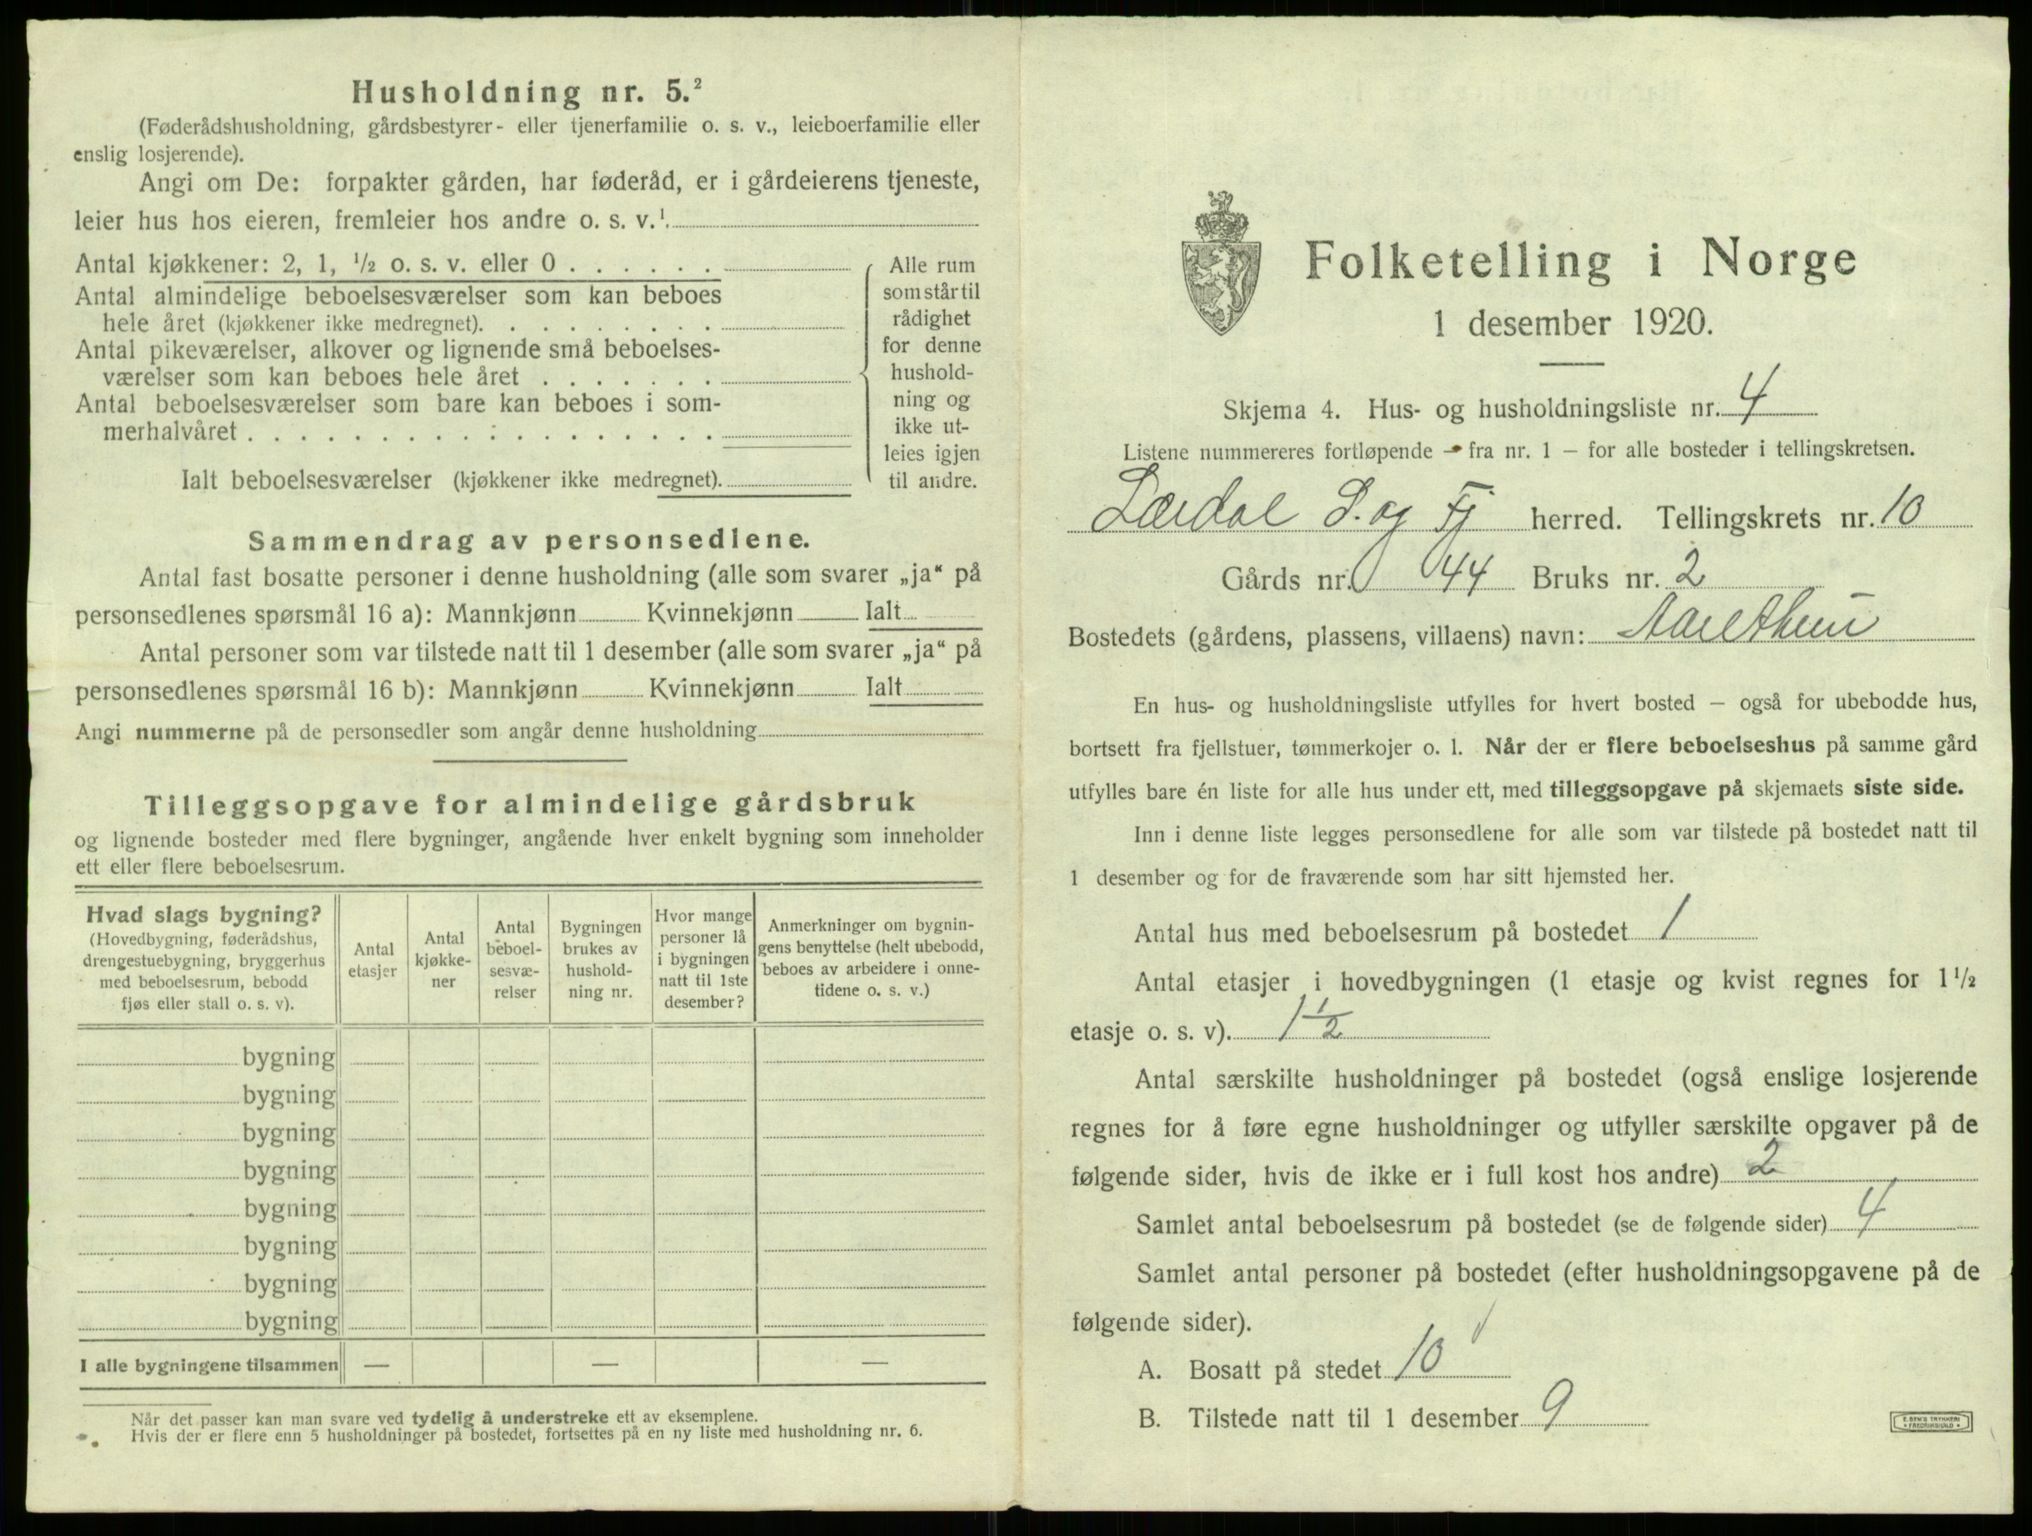 Husholdning nr. 5.²
(Føderådshusholdning, gårdsbestyrer- eller tjenerfamilie o. s. v., leieboerfamilie eller
enslig losjerende).
Angi om De: forpakter gården, har føderåd, er i gårdeierens tjeneste,
leier hus hos eieren, fremleier hos andre o. s. v.¹
Antal kjøkkener: 2, 1, ½ o. s. v. eller 0 . . . . . .
Antal almindelige beboelsesværelser som kan beboes
hele året (kjøkkener ikke medregnet). . . . . . . . .
Antal pikeværelser, alkover og lignende små beboelses-
værelser som kan beboes hele året . . . . . . .
Antal beboelsesværelser som bare kan beboes i som-
merhalvåret . . . . . . . . . . . . . . . . . .
Ialt beboelsesværelser (kjøkkener ikke medregnet).
Alle rum
som står til
rådighet
for denne
hushold-
ning og
ikke ut-
leies igjen
til andre.
Sammendrag av personsedlene.
Antal fast bosatte personer i denne husholdning (alle som svarer „ja“ på
personsedlenes spørsmål 16 a): Mannkjønn Kvinnekjønn Ialt
Antal personer som var tilstede natt til 1 desember (alle som svarer „ja“ på
personsedlenes spørsmål 16 b): Mannkjønn Kvinnekjønn Ialt
Angi nummerne på de personsedler som angår denne husholdning
Tilleggsopgave for almindelige gårdsbruk
og lignende bosteder med flere bygninger, angående hver enkelt bygning som inneholder
ett eller flere beboelsesrum.
Hvad slags bygning?
(Hovedbygning, føderådshus,
drengestuebygning, bryggerhus
med beboelsesrum, bebodd
fjøs eller stall o. s. v).
Antal
etasjer
Antal
kjøkke-
ner
Antal
beboel-
sesvæ-
relser
Bygningen
brukes av
hushold-
ning nr.
Hvor mange
personer lå
i bygningen
natt til 1ste
desember?
Anmerkninger om bygnin-
gens benyttelse (helt ubebodd,
beboes av arbeidere i onne-
tidene o. s. v.)
bygning
bygning
bygning
bygning
bygning
bygning
bygning
bygning
I alle bygningene tilsammen — — —
Når det passer kan man svare ved tydelig å understreke ett av eksemplene.
Hvis der er flere enn 5 husholdninger på bostedet, fortsettes på en ny liste med husholdning nr. 6.
Folketelling i Norge
1 desember 1920.
Skjema 4. Hus- og husholdningsliste nr. 4
Listene nummereres fortløpende – fra nr. 1 – for alle bosteder i tellingskretsen.
Lærdal S. og Fj herred. Tellingskrets nr. 10
Gårds nr. 44 Bruks nr. 2
Bostedets (gårdens, plassens, villaens) navn:
En hus- og husholdningsliste utfylles for hvert bosted – også for ubebodde hus,
bortsett fra fjellstuer, tømmerkojer o. l. Når der er flere beboelseshus på samme gård
utfylles bare én liste for alle hus under ett, med tilleggsopgave på skjemaets siste side.
Inn i denne liste legges personsedlene for alle som var tilstede på bostedet natt til
1 desember og for de fraværende som har sitt hjemsted her.
Antal hus med beboelsesrum på bostedet 1
Antal etasjer i hovedbygningen (1 etasje og kvist regnes for 1½
etasje o. s. v). 1½
Antal særskilte husholdninger på bostedet (også enslige losjerende
regnes for å føre egne husholdninger og utfyller særskilte opgaver på de
følgende sider, hvis de ikke er i full kost hos andre) 2
Samlet antal beboelsesrum på bostedet (se de følgende sider) 4
Samlet antal personer på bostedet (efter husholdningsopgavene på de
følgende sider).
A. Bosatt på stedet 10
B. Tilstede natt til 1 desember 9
E. SEM'S TRYKKERI
• FREDRIKSHALD •